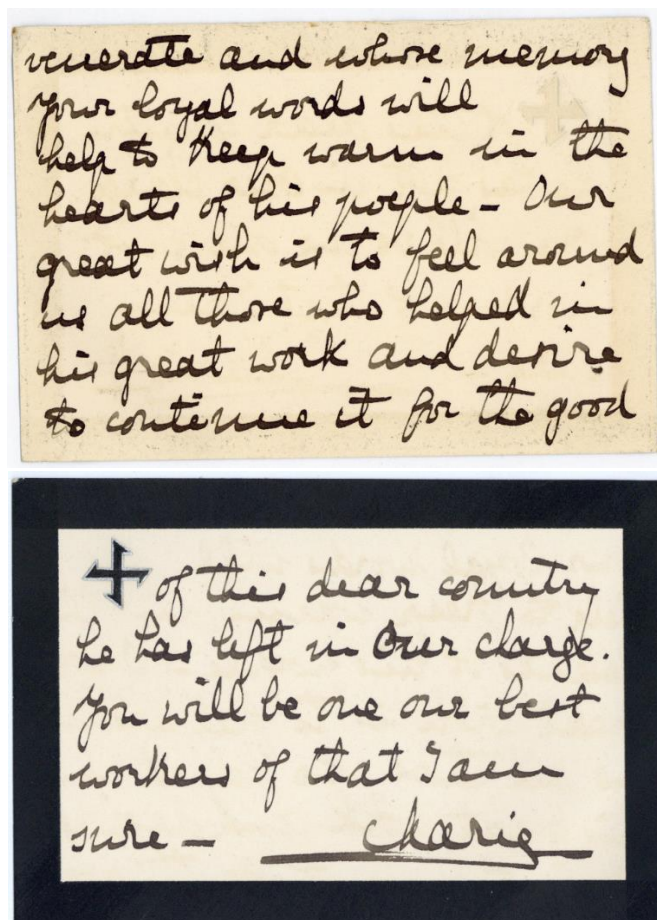 venerate and whose memory
your loyal words will
help to keep warm in the
hearts of his people – Our
great wish is to feel around
us all those who helped in
his great work and desire
to continue it for the good
of this dear country
he has left in our charge.
You will be one our best
workers of that I am
sure –   Marie